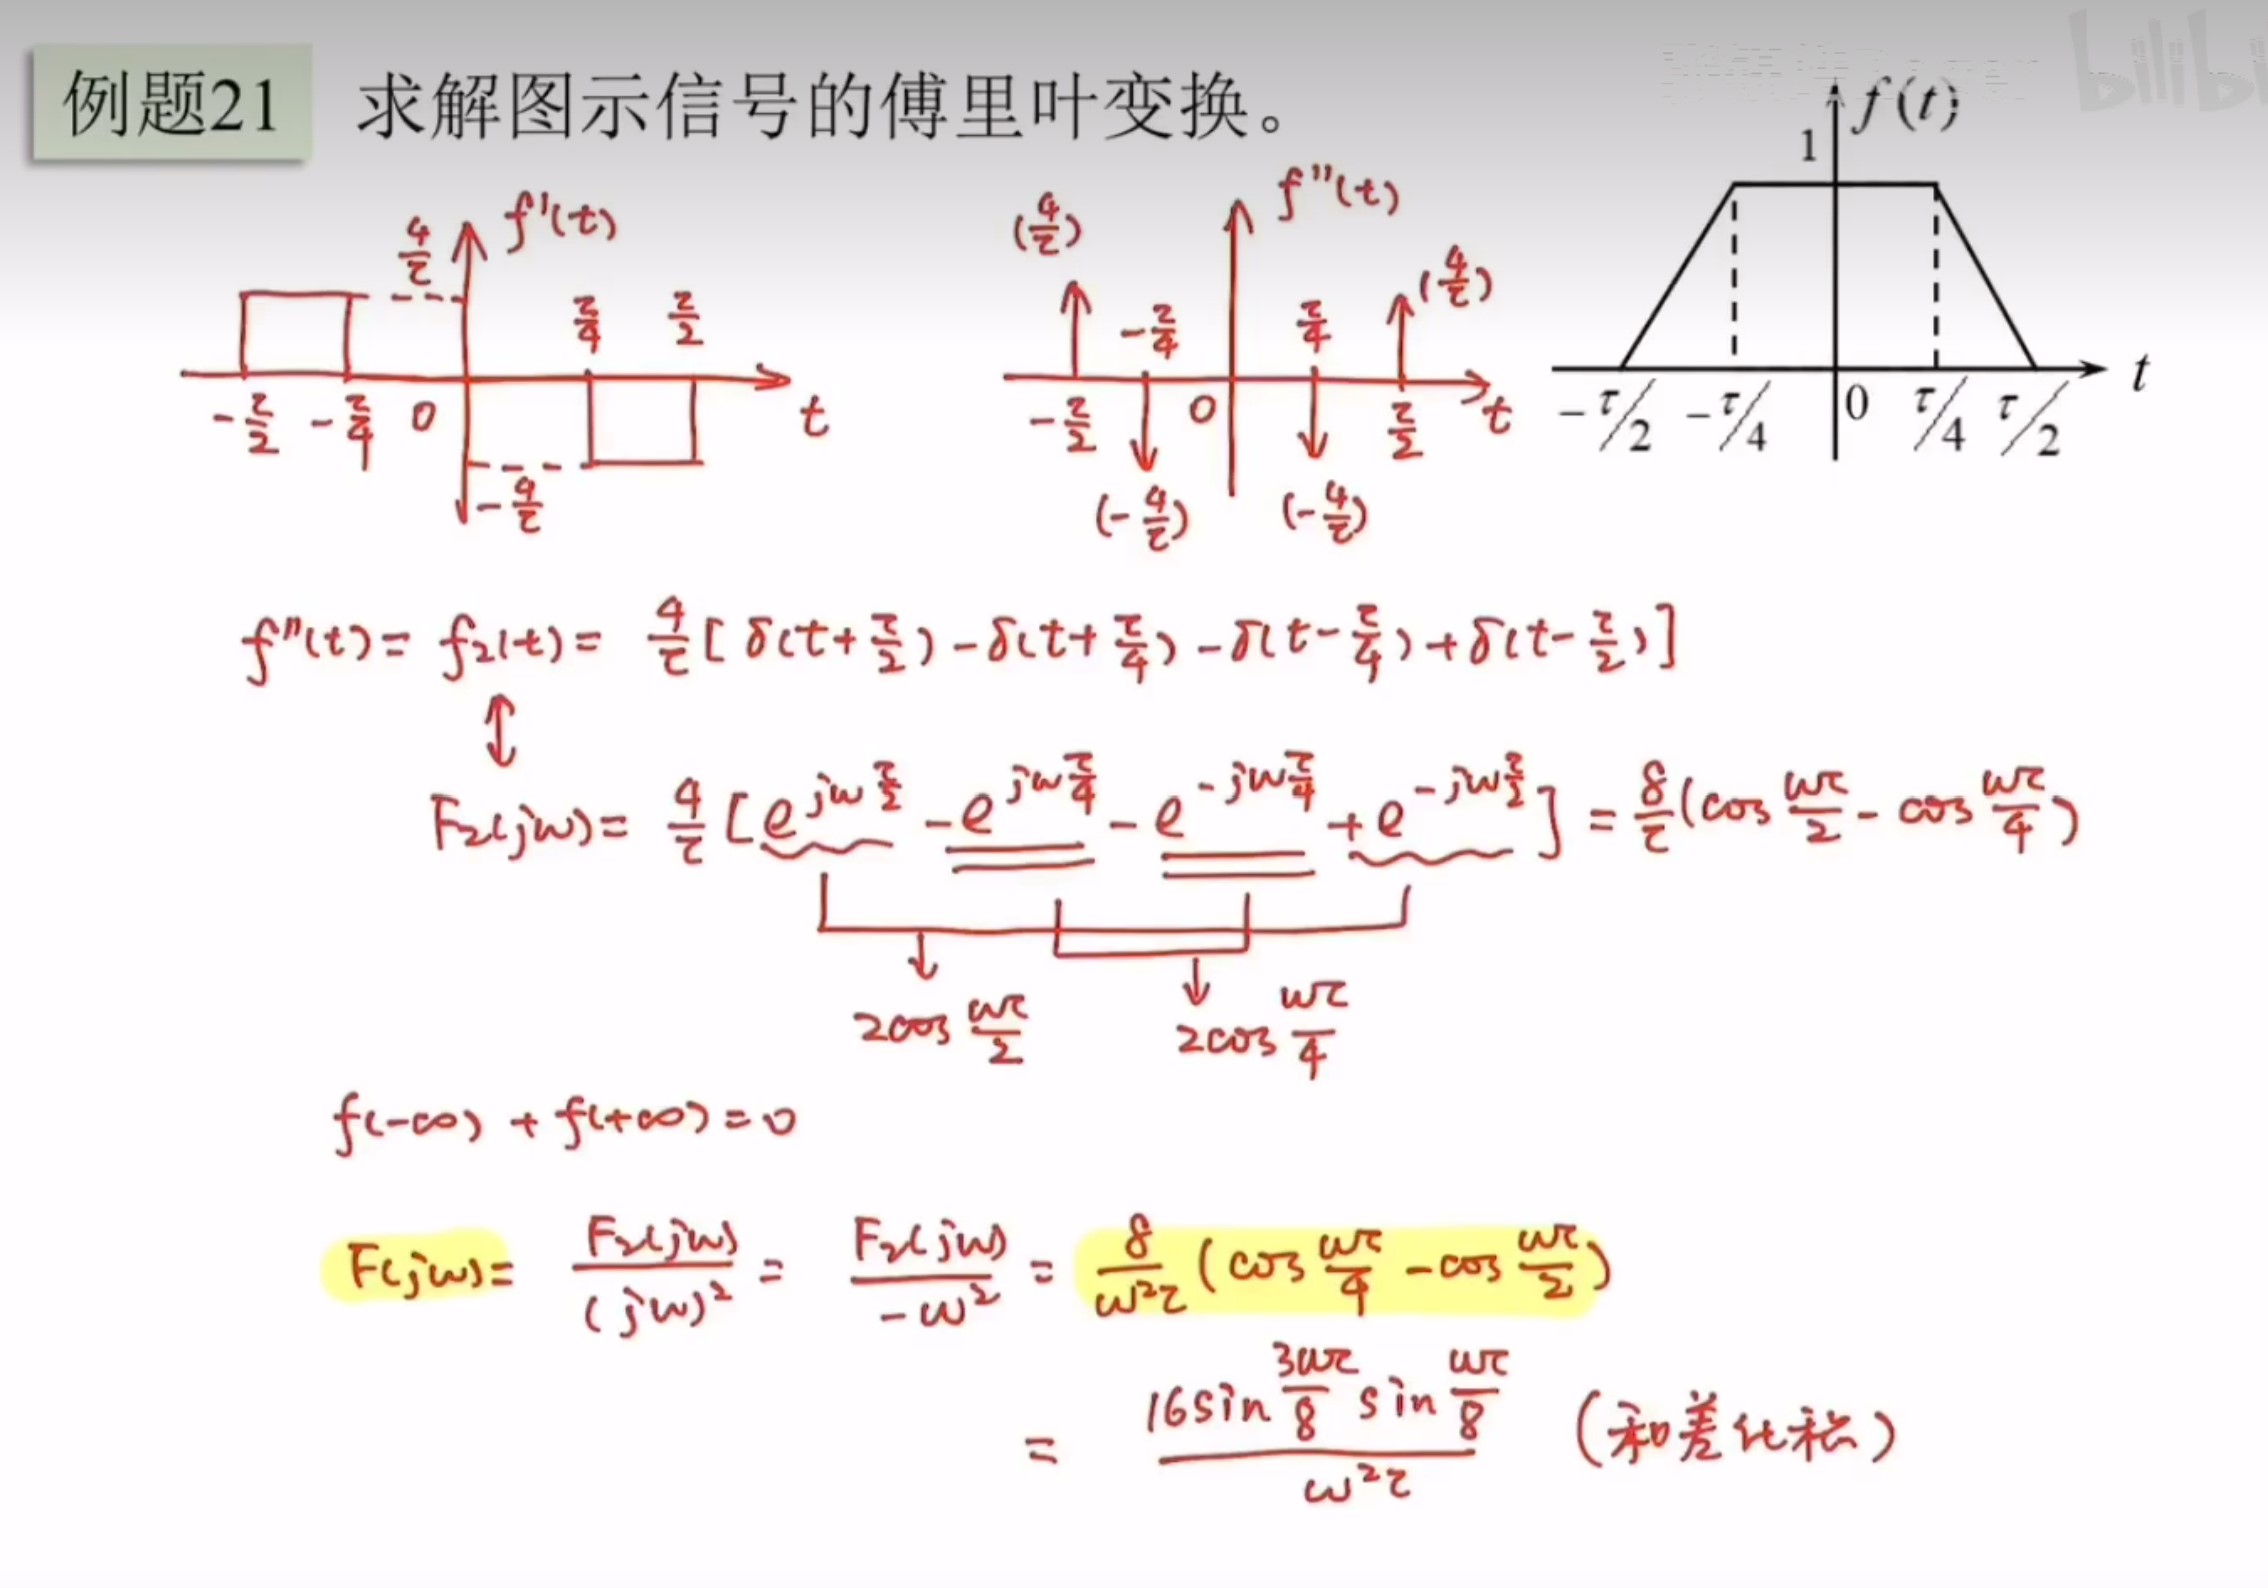 例题21 求解图示信号的傅里叶变换。
bilibi
f(t)
1
-τ/2 -τ/4 0 τ/4 τ/2 t
f'(t)
4/τ
τ/4 τ/2
-τ/2 -τ/4 0 t
-4/τ
f''(t)
(4/τ) (4/τ)
-τ/4 τ/4
-τ/2 0 τ/2 t
(-4/τ) (-4/τ)
f''(t) = f₂(t) = 4/τ [δ(t+τ/2) - δ(t+τ/4) - δ(t-τ/4) + δ(t-τ/2)]
↕
F₂(jω) = 4/τ [e^{jωτ/2} - e^{jωτ/4} - e^{-jωτ/4} + e^{-jωτ/2}] = 8/τ (cos ωτ/2 - cos ωτ/4)
2cos ωτ/2 2cos ωτ/4
f(-∞) + f(+∞) = 0
F(jω) = F₂(jω)/(jω)² = F₂(jω)/-ω² = 8/ω²τ (cos ωτ/4 - cos ωτ/2)
= 16sin 3ωτ/8 sin ωτ/8 / ω²τ (和差化积)